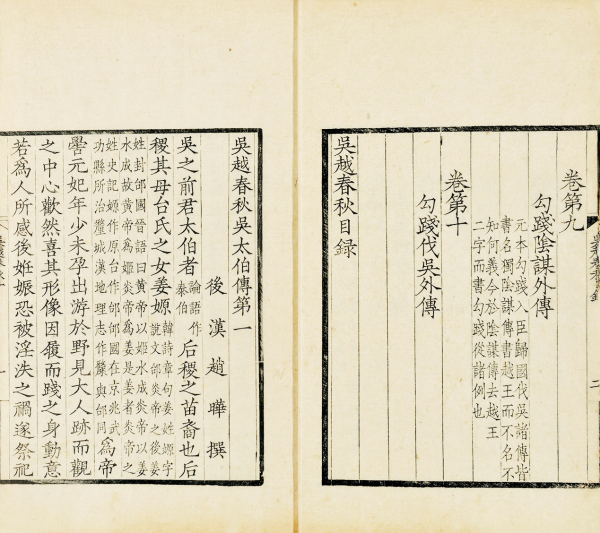 卷第九
勾踐陰謀外傳
元本勾踐入臣歸國伐吳諸傳皆
書名獨陰謀傳書越王而不名不
知何義今於陰謀傳去越王
二字而書勾踐從諸例也
卷第十
勾踐伐吳外傳
吳越春秋目録
吳越春秋吳太伯傳第一
後漢趙曄撰
吳之前君太伯者論語作泰伯后稷之苗裔也后
稷其母台氏之女姜嫄韓詩章句姜姓嫄字說文邰炎帝之後姜
姓封邰國晉語曰黃帝以姬水成炎帝以姜
水成故黃帝爲姬炎帝爲姜是姜者炎帝之
姓史記嫄作原台作邰邰國在京兆武
功縣所治釐城漢地理志作斄與邰同爲帝
嚳元妃年少未孕出游於野見大人跡而觀
之中心歡然喜其形像因履而踐之身動意
若爲人所感後姙娠恐被淫泆之禍遂祭祀